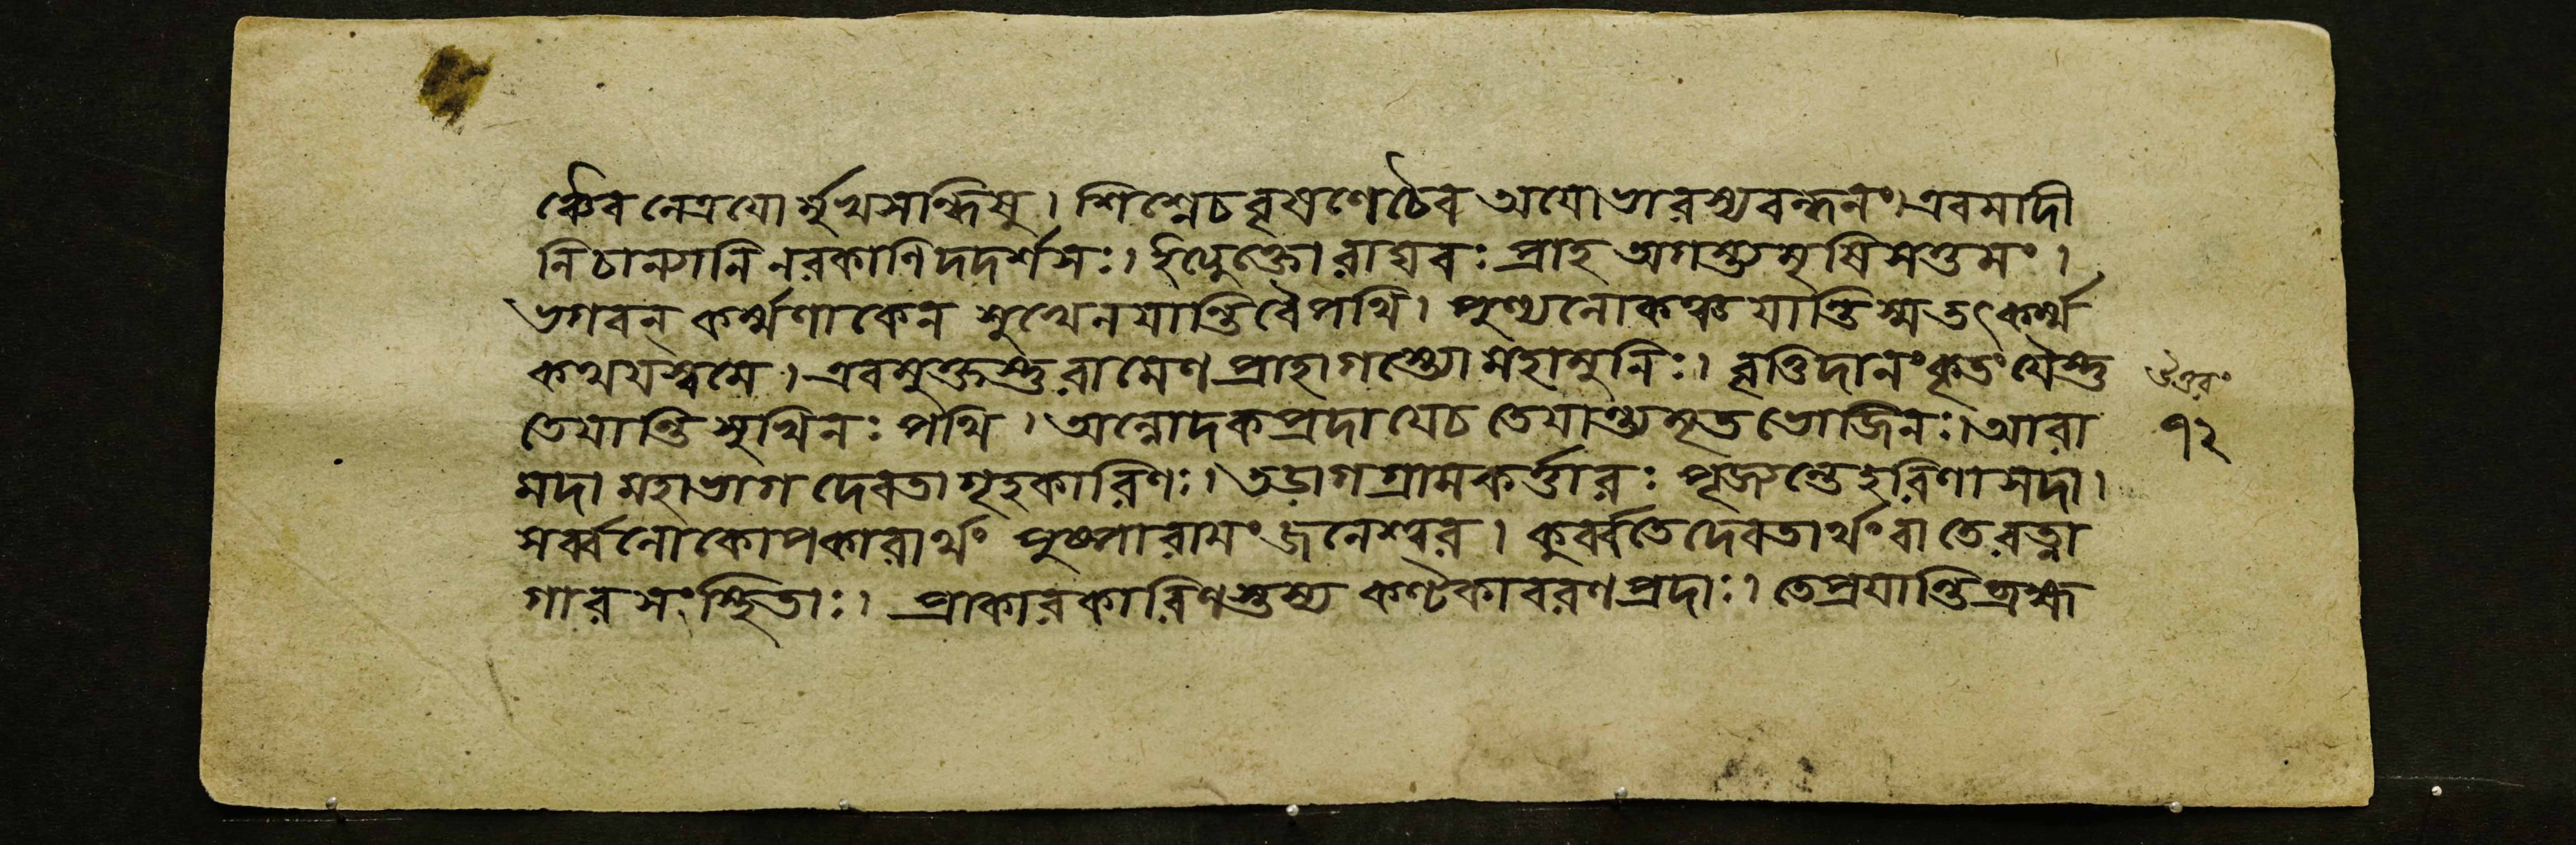 ঞ্চৈব নেত্রয়োর্ম্মুখসন্ধিষু । শিশ্নেচ বৃষণেচৈব অয়োভারস্যবন্ধনং। এবমাদী
নিচান্যানি নরকাণি দদর্শসঃ। ইত্যুক্তো রাঘবঃ প্রাহ অগস্ত্যমৃষিসত্তমং ।
ভগবন্ কর্ম্মণাকেন সুখেনযান্তিবৈপথি । পুণ্যলোকঞ্চযান্তিস্ম তৎকর্ম্ম
কথযস্বমে । এবমুক্তস্তু রামেণ প্রাহাগস্ত্যো মহামুনিঃ। বৃত্তিদানং কৃতং যৈস্তু
তেযান্তি সুখিনঃ পথি । অন্নোদকপ্রদাযেচ তেযান্ত্যমৃতভোজিনঃ। আরা
মদা মহাভাগ দেবতাগৃহকারিণঃ। তড়াগগ্রামকর্ত্তারঃ পূজ্যন্তে হরিণাসদা।
সর্ব্বলোকোপকারার্থং পুষ্পারামং জনেশ্বর । কুর্ব্বতে দেবতার্থংবা তে রত্না
গারসংস্থিতাঃ। প্রাকারকারিণস্তুস্য কণ্টকাবরণপ্রদাঃ। তেপ্রযান্তি ব্রহ্ম
১২